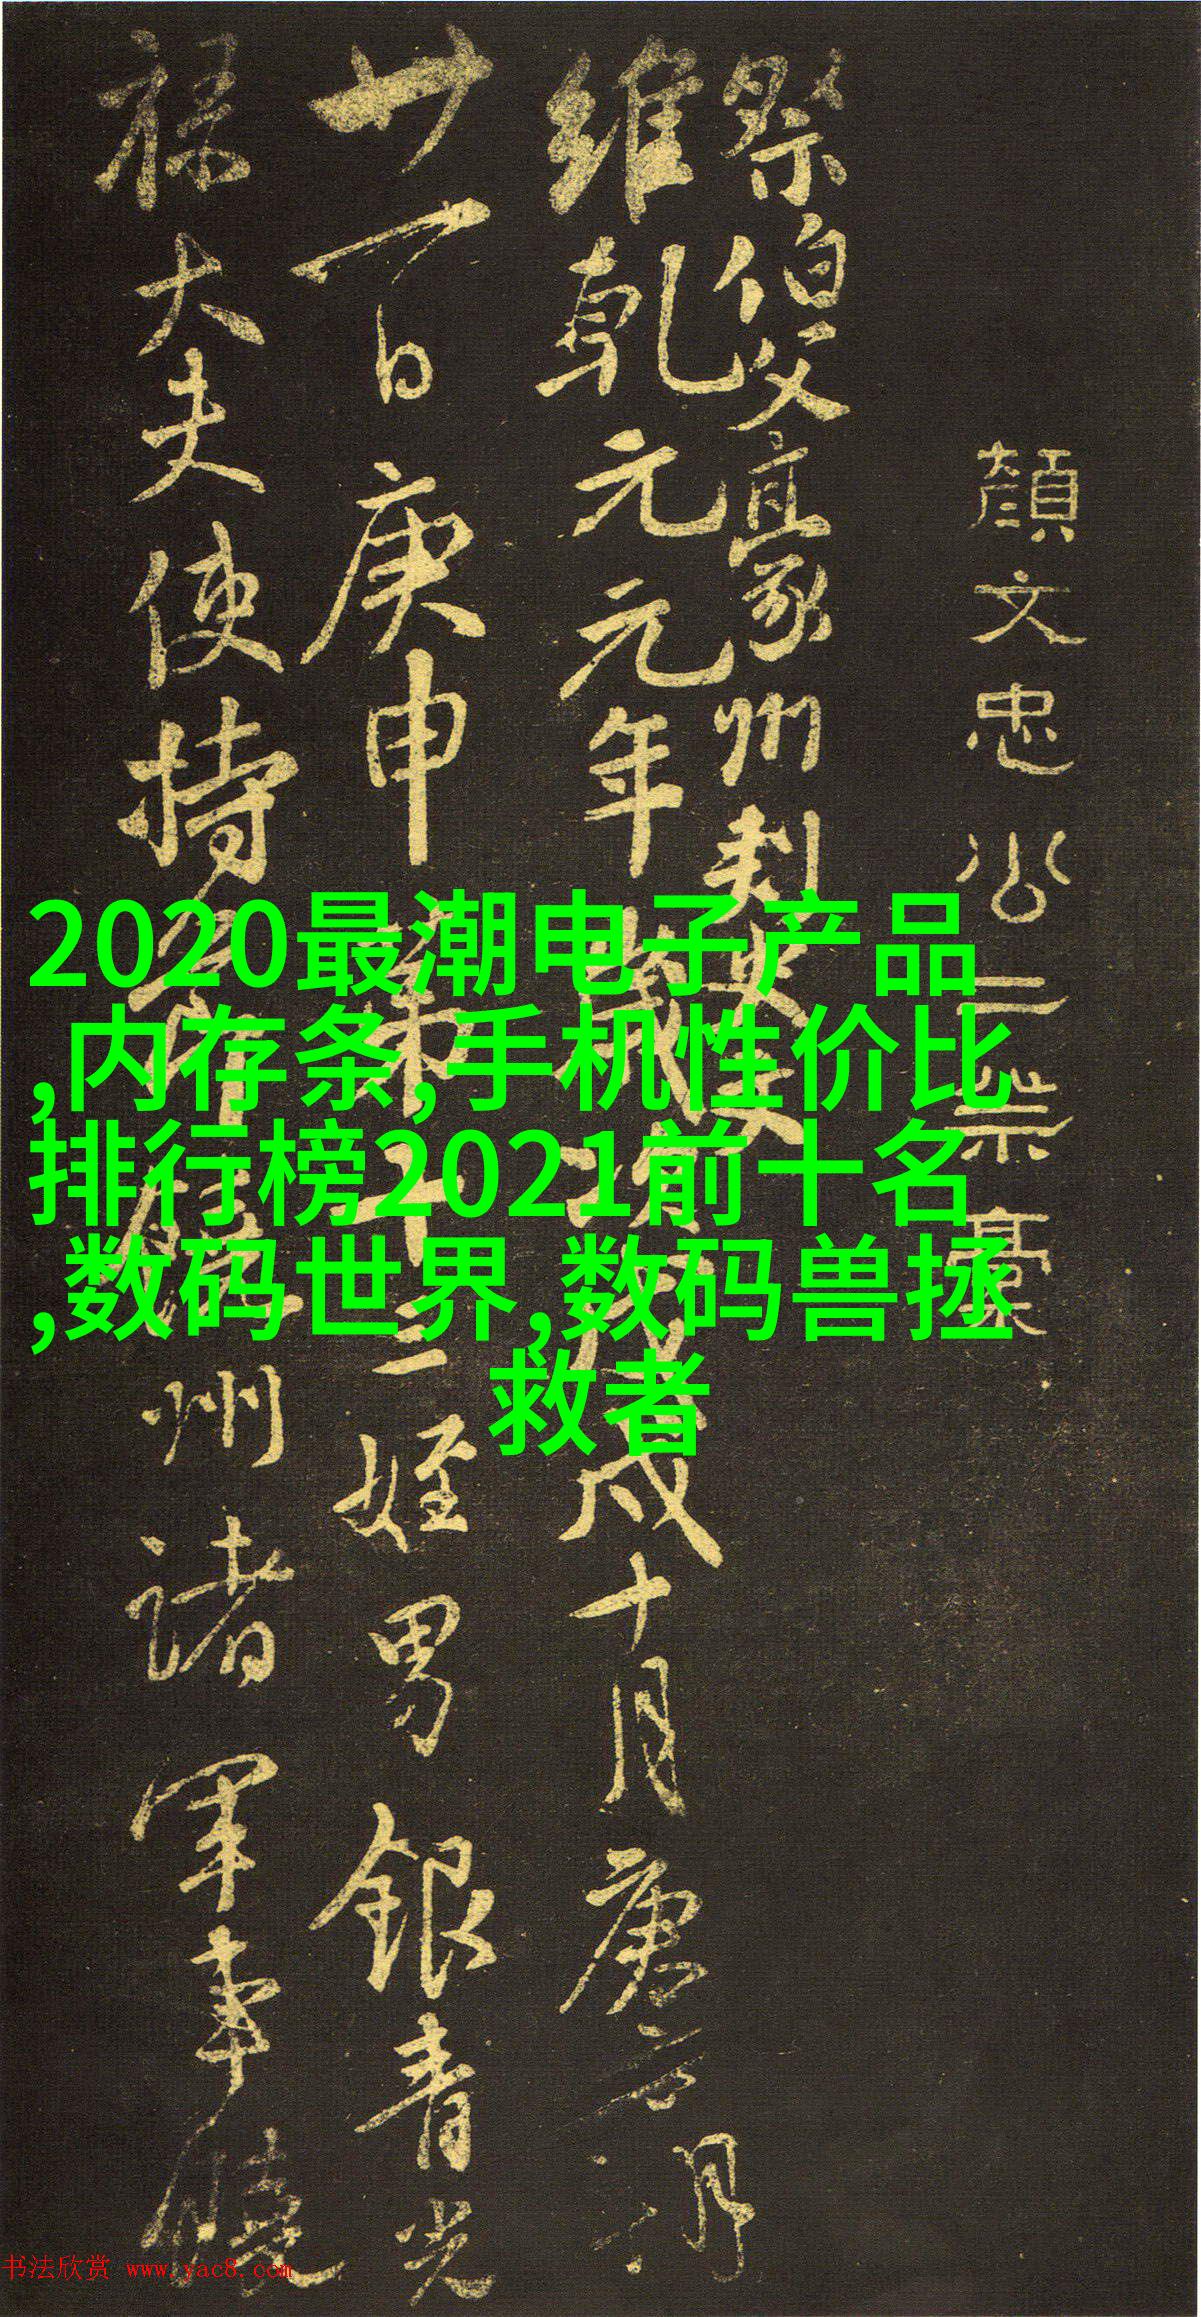 顏文忠公二祭藁
祭伯父豪州刺史文
維乾元元年歲次戊戌十月庚朔
廿一日庚申第十三姪男銀青光
祿大夫使持節饒州諸軍事饒
2020最潮电子产品
,内存条,手机性价比
排行榜2021前十名
,数码世界,数码兽拯
救者
书法欣赏 www.yac8.com